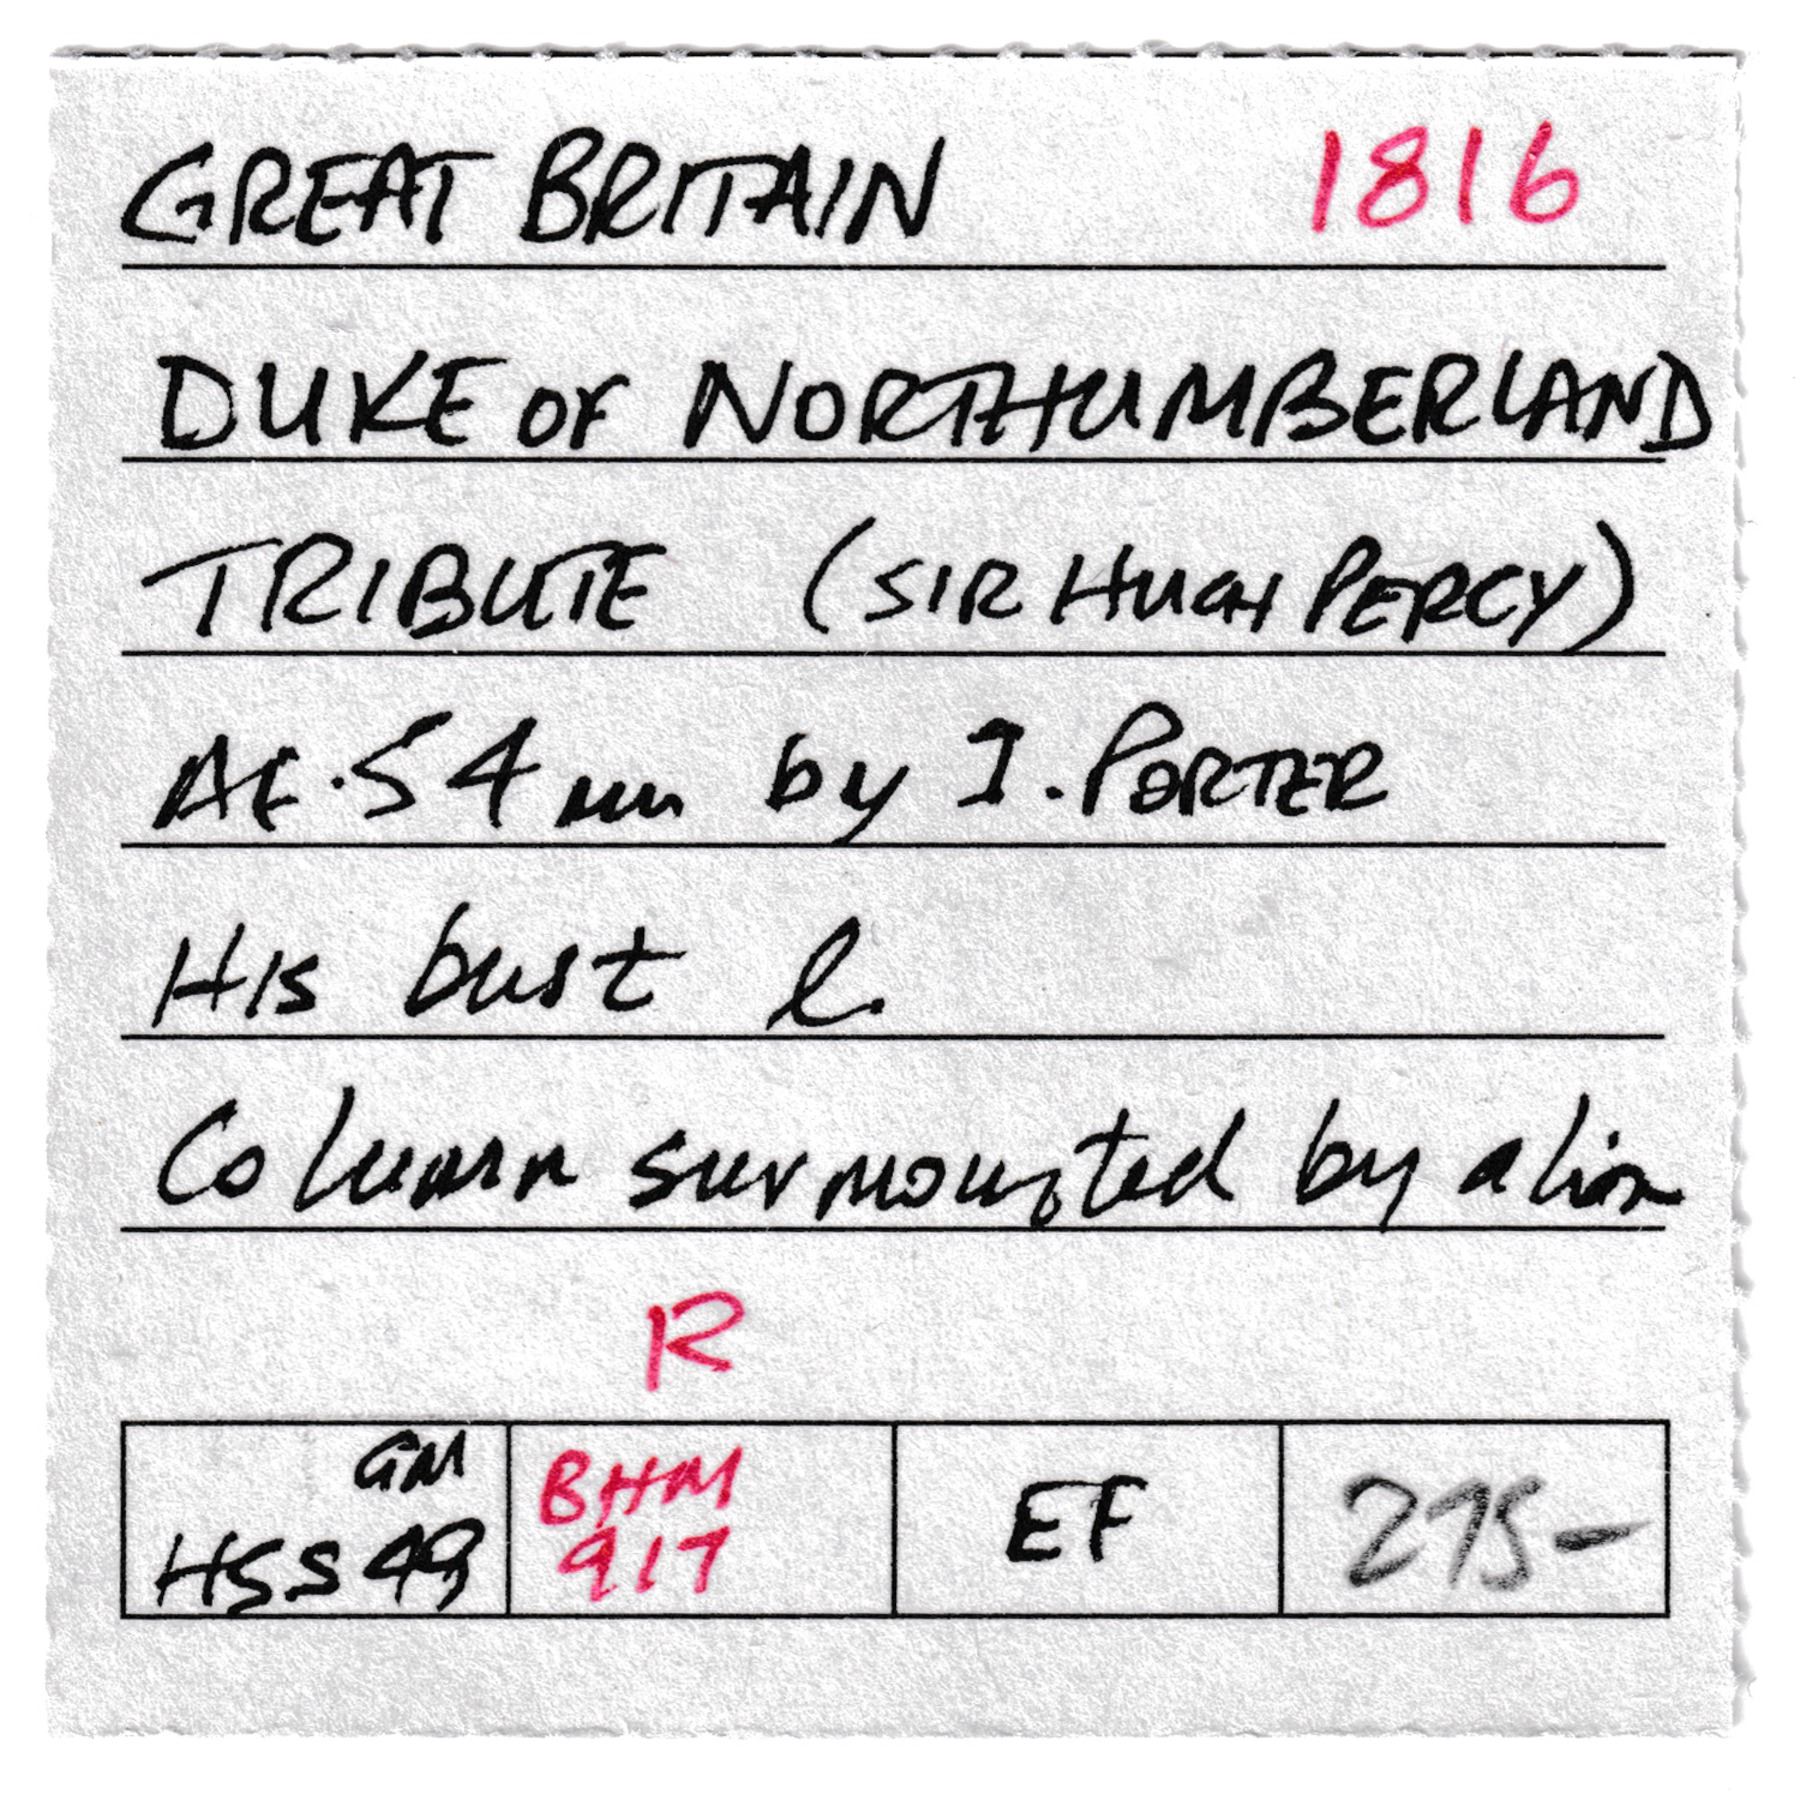 GREAT BRITAIN 1816
DUKE OF NORTHUMBERLAND
TRIBUTE (SIR HUGH PERCY)
AE. 54 mm by I. PORTER
His bust l.
Column surmounted by a lion
R
GM
HSS 49
BHM
917
EF
275-